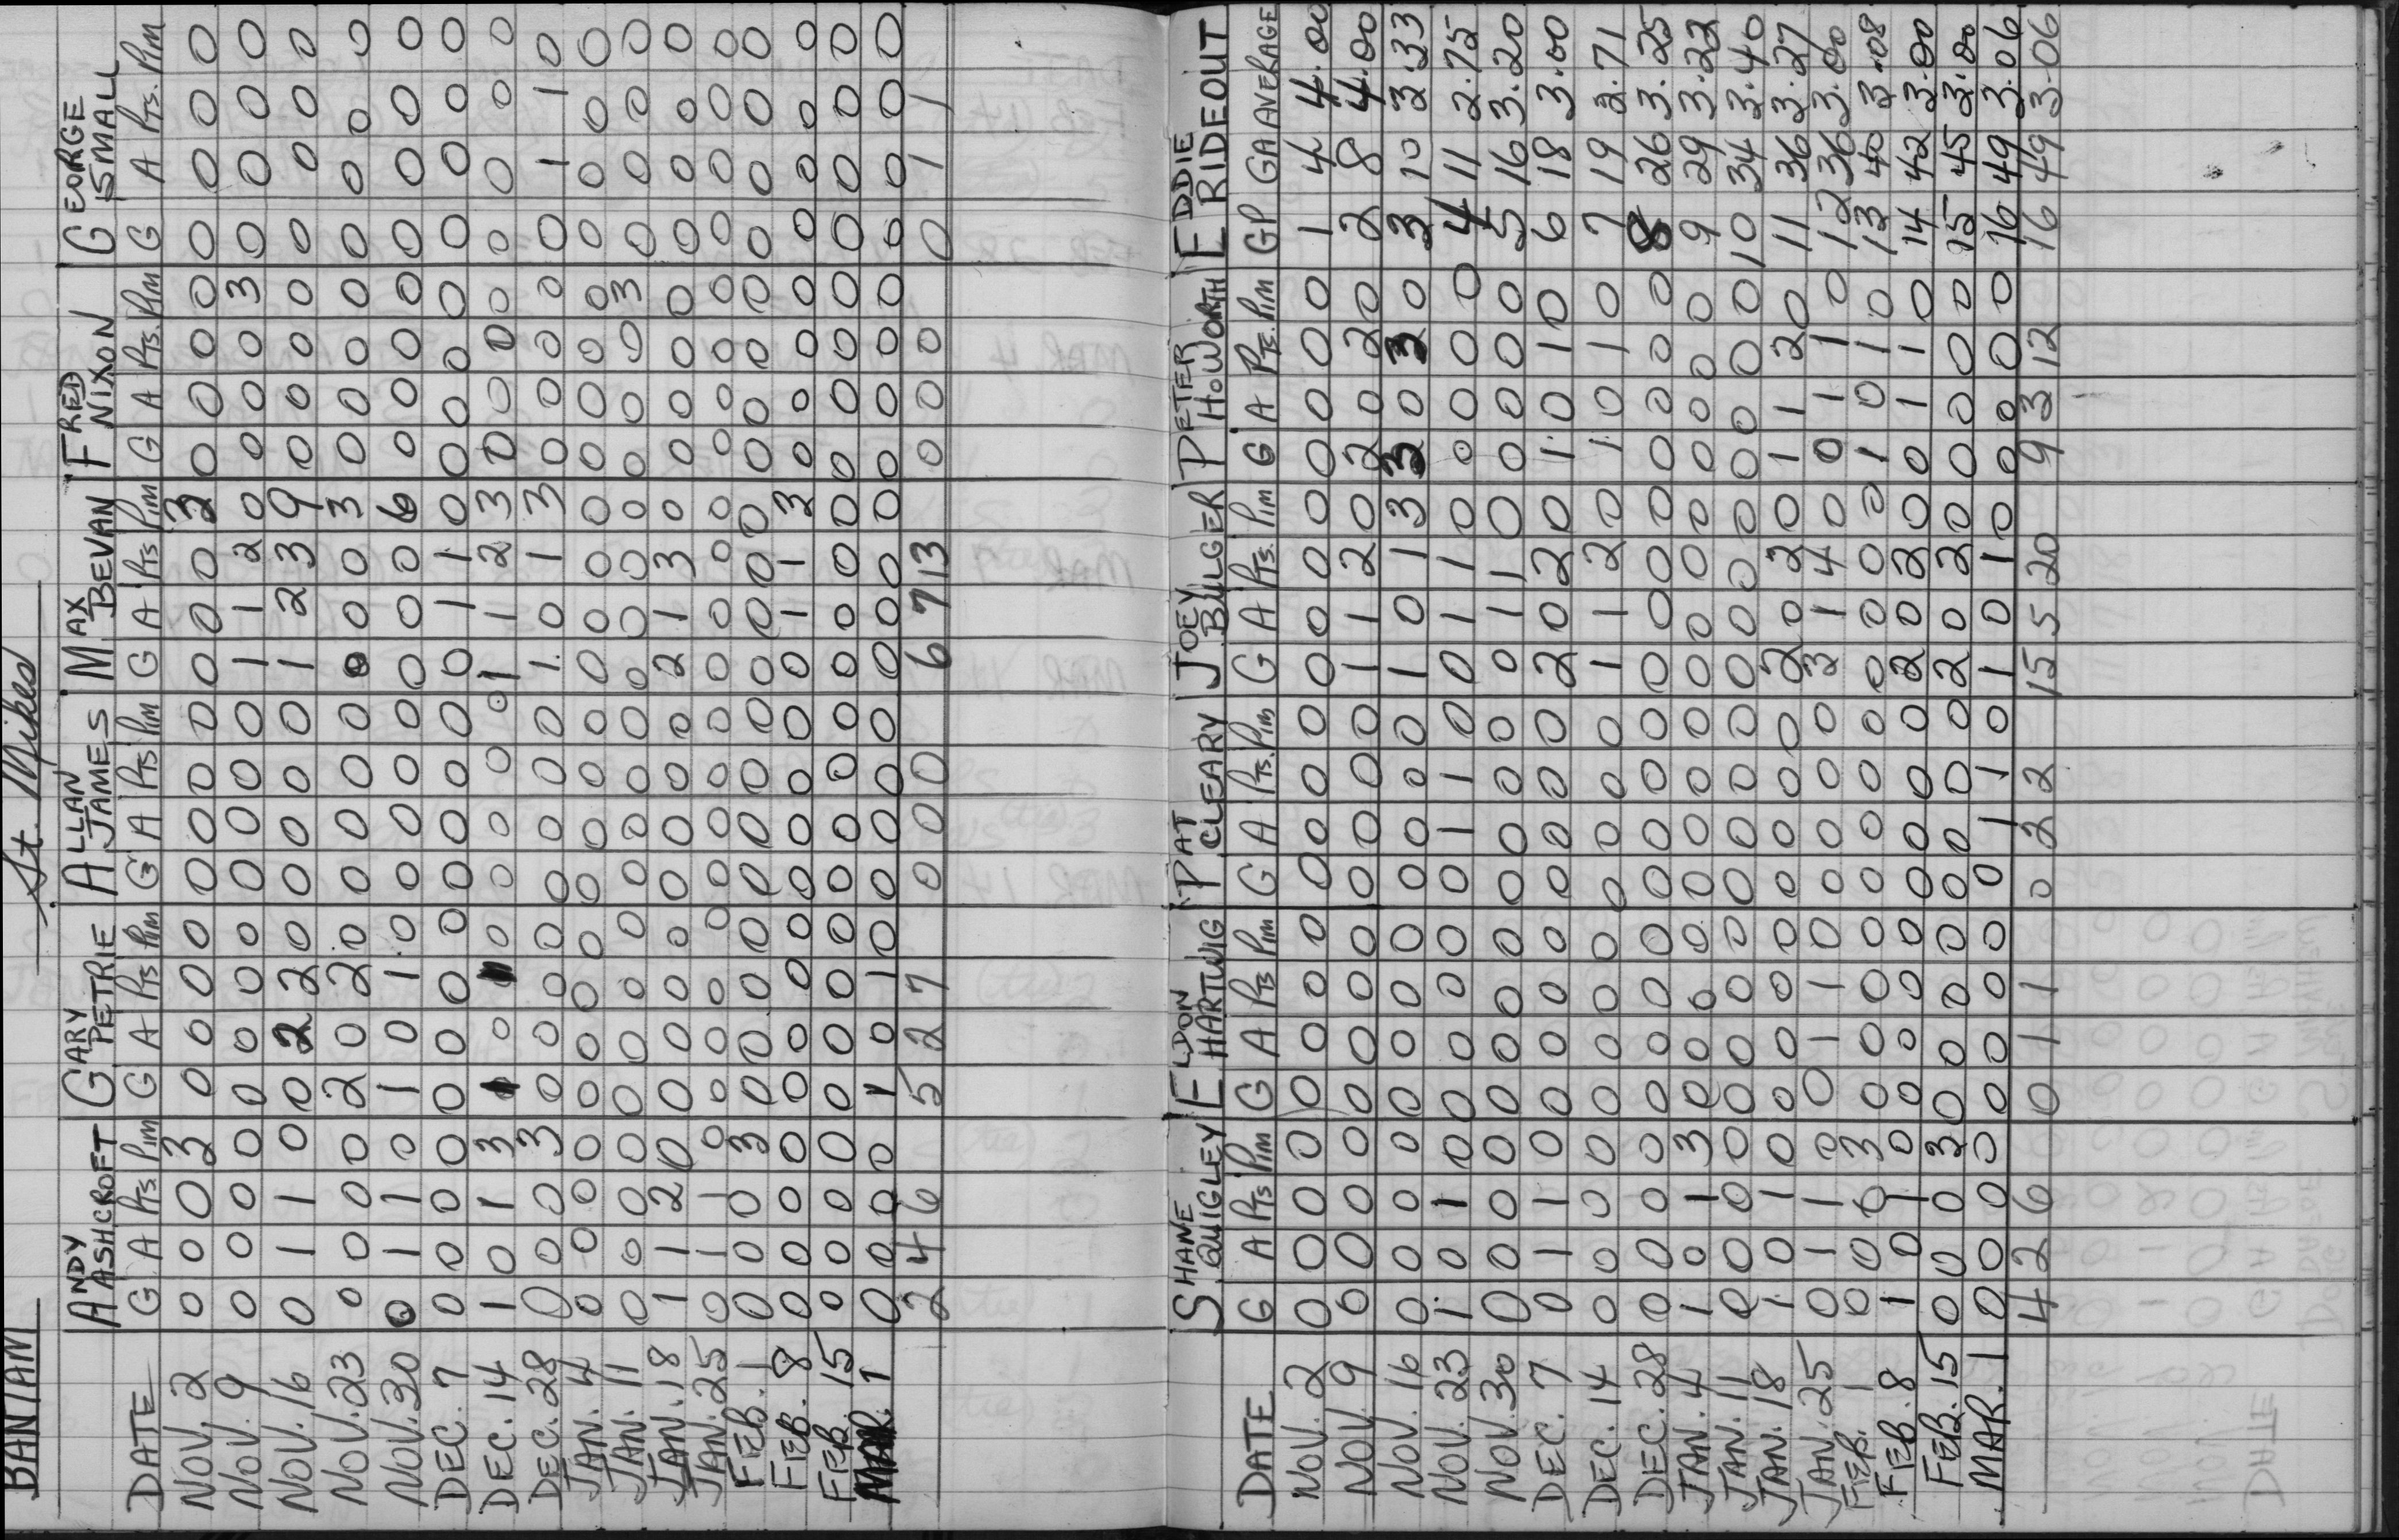 BANTAM St. Mikes
ANDY ASHCROFT GARY PETRIE ALLAN JAMES MAX BEVAN FRED NIXON GEORGE SMALL
DATE G A Pts Pim G A Pts Pim G A Pts Pim G A Pts Pim G A Pts. Pim G A Pts. Pim
NOV. 2 0 0 0 3 0 0 0 0 0 0 0 0 0 0 0 3 0 0 0 0 0 0 0 0
NOV. 9 0 0 0 0 0 0 0 0 0 0 0 0 1 1 2 0 0 0 0 3 0 0 0 0
NOV. 16 0 1 1 0 0 2 2 0 0 0 0 0 1 2 3 9 0 0 0 0 0 0 0 0
NOV. 23 0 0 0 0 2 0 2 0 0 0 0 0 0 0 0 3 0 0 0 0 0 0 0 0
NOV. 30 0 1 1 0 1 0 1 0 0 0 0 0 0 0 0 6 0 0 0 0 0 0 0 0
DEC. 7 0 0 0 0 0 0 0 0 0 0 0 0 0 1 1 0 0 0 0 0 0 0 0 0
DEC. 14 1 0 1 3 1 0 1 0 0 0 0 0 1 1 2 3 0 0 0 0 0 0 0 0
DEC. 28 0 0 0 3 0 0 0 0 0 0 0 0 1 0 1 3 0 0 0 0 0 1 1 0
JAN. 4 0 0 0 0 0 0 0 0 0 0 0 0 0 0 0 0 0 0 0 0 0 0 0 0
JAN. 11 0 0 0 0 0 0 0 0 0 0 0 0 0 0 0 0 0 0 0 3 0 0 0 0
JAN. 18 1 1 2 0 0 0 0 0 0 0 0 0 2 1 3 0 0 0 0 0 0 0 0 0
JAN. 25 0 1 1 0 0 0 0 0 0 0 0 0 0 0 0 0 0 0 0 0 0 0 0 0
FEB. 1 0 0 0 3 0 0 0 0 0 0 0 0 0 0 0 0 0 0 0 0 0 0 0 0
FEB. 8 0 0 0 0 0 0 0 0 0 0 0 0 0 1 1 3 0 0 0 0 0 0 0 0
FEB 15 0 0 0 0 0 0 0 0 0 0 0 0 0 0 0 0 0 0 0 0 0 0 0 0
MAR. 1 0 0 0 0 1 0 1 0 0 0 0 0 0 0 0 0 0 0 0 0 0 0 0 0
2 4 6 5 2 7 0 0 0 6 7 13 0 0 0 0 1 1
SHANE QUIGLEY ELDON HARTWIG PAT CLEARY JOEY BULGER PETER HOWORTH EDDIE RIDEOUT
DATE G A Pts Pim G A Pts Pim G A Pts. Pim G A Pts. Pim G A Pts. Pim GP GA AVERAGE
NOV. 2 0 0 0 0 0 0 0 0 0 0 0 0 0 0 0 0 0 0 0 0 1 4 4.00
NOV. 9 0 0 0 0 0 0 0 0 0 0 0 0 1 1 2 0 2 0 2 0 2 8 4.00
NOV. 16 0 0 0 0 0 0 0 0 0 0 0 0 1 0 1 3 3 0 3 0 3 10 3.33
NOV. 23 1 0 1 0 0 0 0 0 0 1 1 0 0 1 1 0 0 0 0 0 4 11 2.75
NOV. 30 0 0 0 0 0 0 0 0 0 0 0 0 0 1 1 0 0 0 0 0 5 16 3.20
DEC. 7 0 1 1 0 0 0 0 0 0 0 0 0 2 0 2 0 1 0 1 0 6 18 3.00
DEC. 14 0 0 0 0 0 0 0 0 0 0 0 0 1 1 2 0 1 0 1 0 7 19 2.71
DEC. 28 0 0 0 0 0 0 0 0 0 0 0 0 0 0 0 0 0 0 0 0 8 26 3.25
JAN. 4 1 0 1 3 0 0 0 0 0 0 0 0 0 0 0 0 0 0 0 0 9 29 3.22
JAN. 11 0 0 0 0 0 0 0 0 0 0 0 0 0 0 0 0 0 0 0 0 10 34 3.40
JAN. 18 1 0 1 0 0 0 0 0 0 0 0 0 2 0 2 0 1 1 2 0 11 36 3.27
JAN. 25 0 1 1 0 0 1 1 0 0 0 0 0 3 1 4 0 0 1 1 0 12 36 3.00
FEB. 1 0 0 0 3 0 0 0 0 0 0 0 0 0 0 0 0 1 0 1 0 13 40 3.08
FEB. 8 1 0 1 0 0 0 0 0 0 0 0 0 2 0 2 0 0 1 1 0 14 42 3.00
FEB. 15 0 0 0 3 0 0 0 0 0 0 0 0 2 0 2 0 0 0 0 0 15 45 3.00
MAR. 1 0 0 0 0 0 0 0 0 0 1 1 0 1 0 1 0 0 0 0 0 16 49 3.06
4 2 6 0 1 1 0 2 2 15 5 20 9 3 12 16 49 3.06